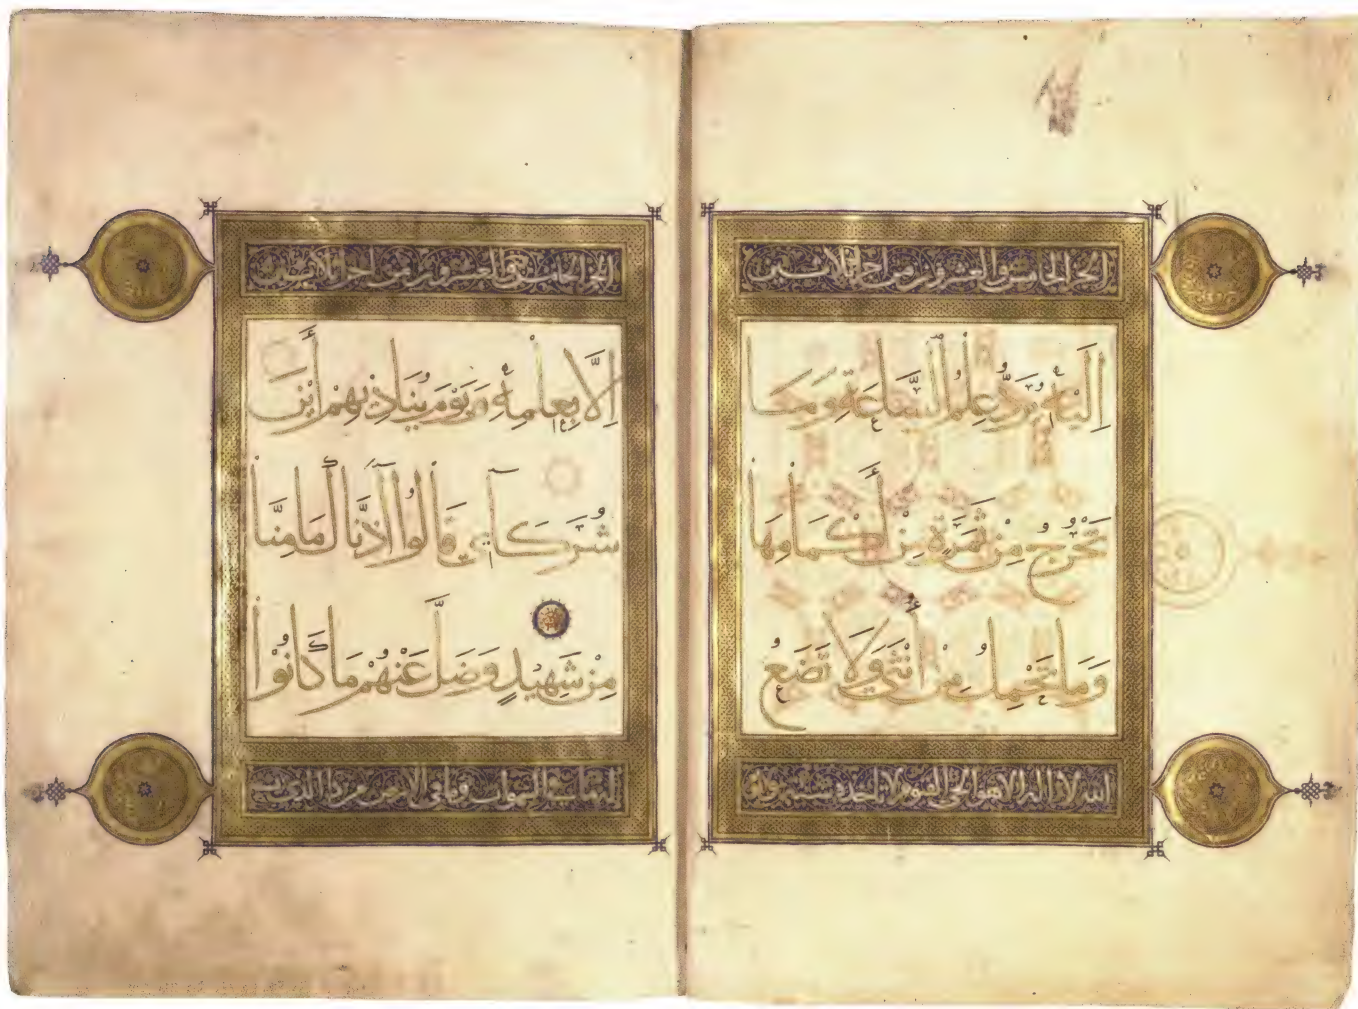 الجزء الخامس والعشرون من أجزاء ثلاثين
إِلَيْهِ يُرَدُّ عِلْمُ السَّاعَةِ وَمَا
تَخْرُجُ مِنْ ثَمَرَةٍ مِنْ أَكْمَامِهَا
وَمَا تَحْمِلُ مِنْ أُنْثَى وَلَا تَضَعُ
الله لا اله الا هو الحي القيوم لا تاخذه سنة ولا نو
الجزء الخامس والعشرون من أجزاء ثلاثين
إِلَّا بِعِلْمِهِ وَيَوْمَ يُنَادِيهِمْ أَيْنَ
شُرَكَائِي قَالُوا آذَنَّاكَ مَا مِنَّا
مِنْ شَهِيدٍ وَضَلَّ عَنْهُمْ مَا كَانُوا
م له ما في السموات وما في الارض من ذا الذي